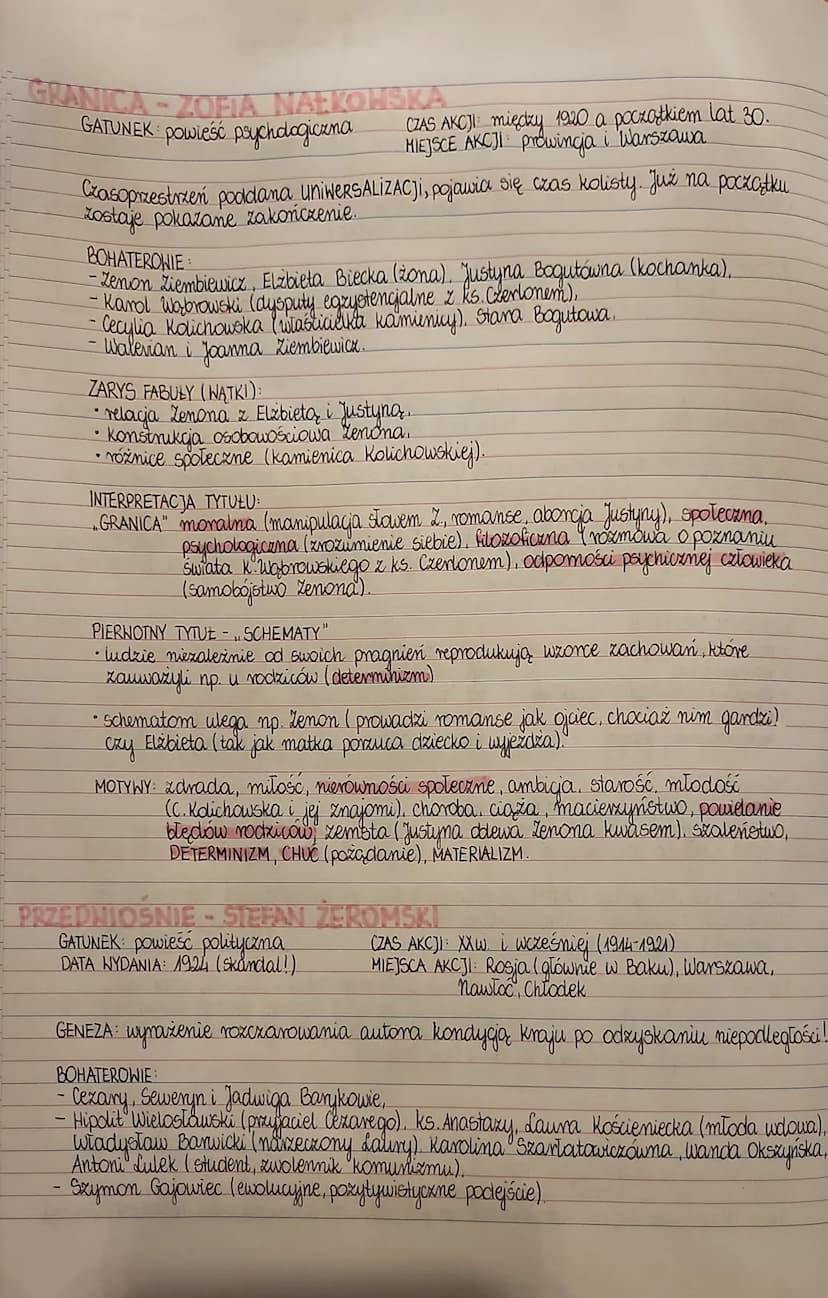 GRANICA - ZOFIA NAŁKOWSKA
GATUNEK: powieść psychologiczna
CZAS AKCJI: między 1920 a początkiem lat 30.
MIEJSCE AKCJI: prowincja i Warszawa
Czasoprzestrzeń poddana UNIWERSALIZACJI, pojawia się czas kolisty. Już na początku
zostaje pokazane zakończenie.
BOHATEROWIE:
- Zenon Ziembiewicz, Elżbieta Biecka (żona), Justyna Bogutówna (kochanka),
- Karol Wąbrowski (dysputy egzystencjalne z ks. Czerlonem),
- Cecylia Kolichowska (właścicielka kamienicy), Stara Bogutowa,
- Walerian i Joanna Ziembiewicz.
ZARYS FABUŁY (WĄTKI):
• relacja Zenona z Elżbietą i Justyną,
• konstrukcja osobowościowa Zenona,
• różnice społeczne (kamienica Kolichowskiej).
INTERPRETACJA TYTUŁU:
„GRANICA" moralna (manipulacja słowem Z., romanse, aborcja Justyny), społeczna,
psychologiczna (zrozumienie siebie), filozoficzna (rozmowa o poznaniu
świata K. Wąbrowskiego z ks. Czerlonem), odporności psychicznej człowieka
(samobójstwo Zenona).
PIERWOTNY TYTUŁ - „SCHEMATY"
• ludzie niezależnie od swoich pragnień reprodukują wzorce zachowań, które
zauważyli np. u rodziców (determinizm)
• schematom ulega np. Zenon (prowadzi romanse jak ojciec, chociaż nim gardzi)
czy Elżbieta (tak jak matka porzuca dziecko i wyjeżdża).
MOTYWY: zdrada, miłość, nierówności społeczne, ambicja, starość, młodość
(C. Kolichowska i jej znajomi), choroba, ciąża, macierzyństwo, powielanie
błędów rodziców, zemsta (Justyna oblewa Zenona kwasem), szaleństwo,
DETERMINIZM, CHUĆ (pożądanie), MATERIALIZM.
PRZEDWIOŚNIE - STEFAN ŻEROMSKI
GATUNEK: powieść polityczna
CZAS AKCJI: XXw. i wcześniej (1914-1921)
DATA WYDANIA: 1924 (skandal!)
MIEJSCA AKCJI: Rosja (głównie w Baku), Warszawa,
Nawłoć, Chłodek
GENEZA: wyrażenie rozczarowania autora kondycją kraju po odzyskaniu niepodległości!
BOHATEROWIE:
- Cezary, Seweryn i Jadwiga Barykowie,
- Hipolit Wielosławski (przyjaciel Cezarego), ks. Anastazy, Laura Kościeniecka (młoda wdowa),
Władysław Barwicki (narzeczony Laury), Karolina Szarłatowiczówna, Wanda Okszyńska,
Antoni Lulek (student, zwolennik komunizmu),
- Szymon Gajowiec (ewolucyjne, pozytywistyczne podejście)